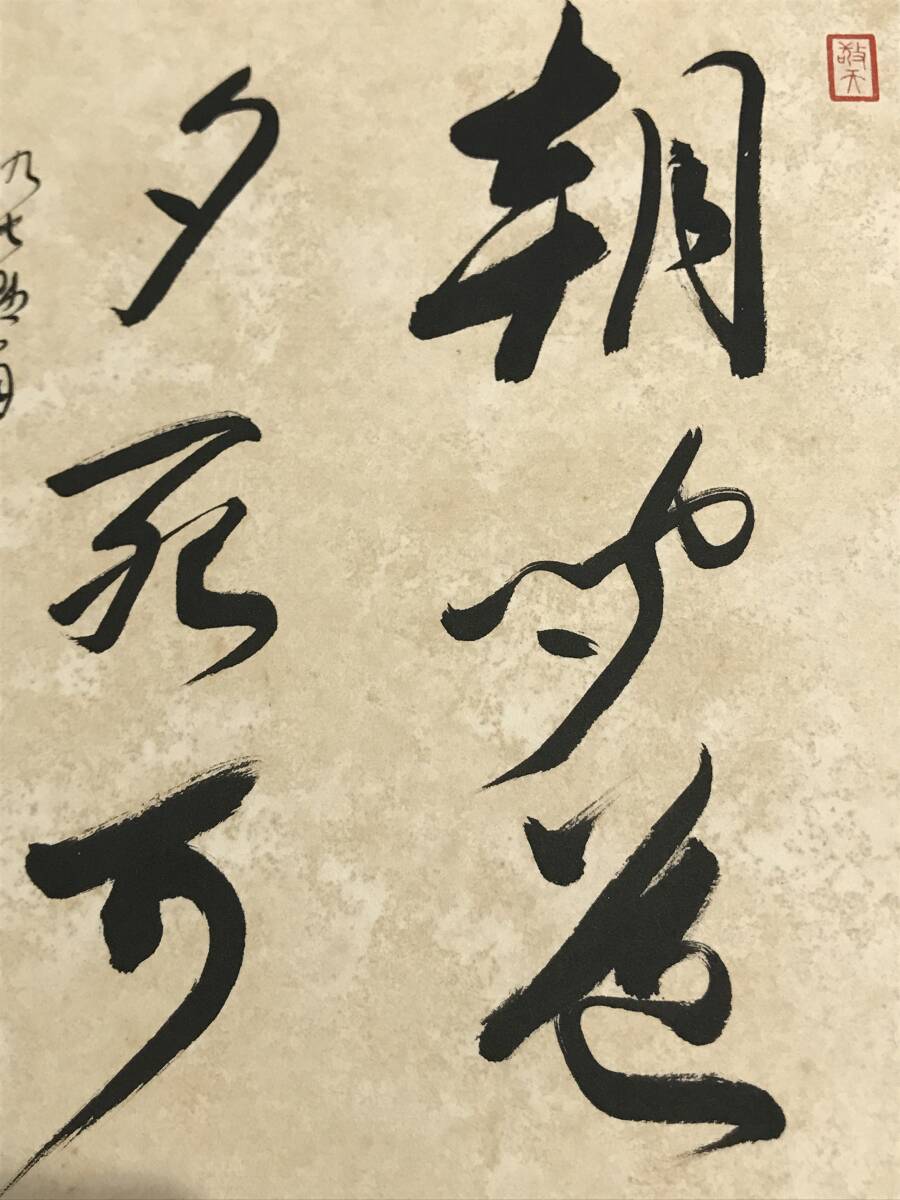 敬天
朝聞道
夕死可
九七